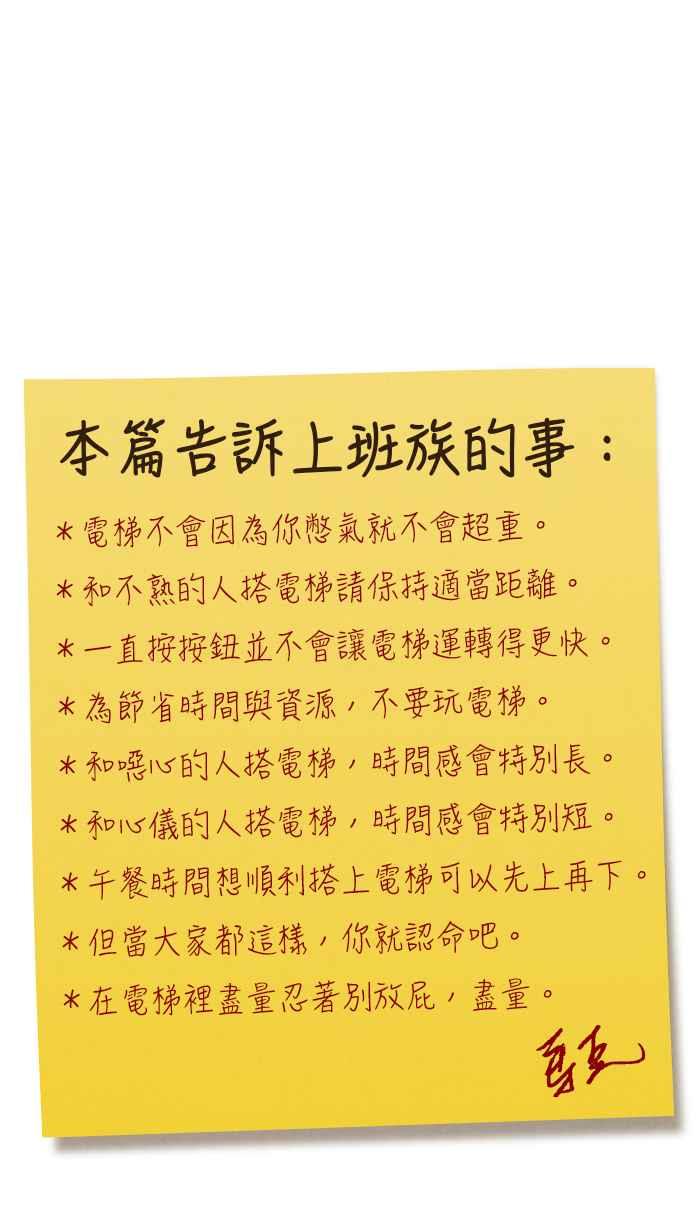 本篇告訴上班族的事：
＊電梯不會因為你憋氣就不會超重。
＊和不熟的人搭電梯請保持適當距離。
＊一直按按鈕並不會讓電梯運轉得更快。
＊為節省時間與資源，不要玩電梯。
＊和噁心的人搭電梯，時間感會特別長。
＊和心儀的人搭電梯，時間感會特別短。
＊午餐時間想順利搭上電梯可以先上再下。
＊但當大家都這樣，你就認命吧。
＊在電梯裡盡量忍著別放屁，盡量。